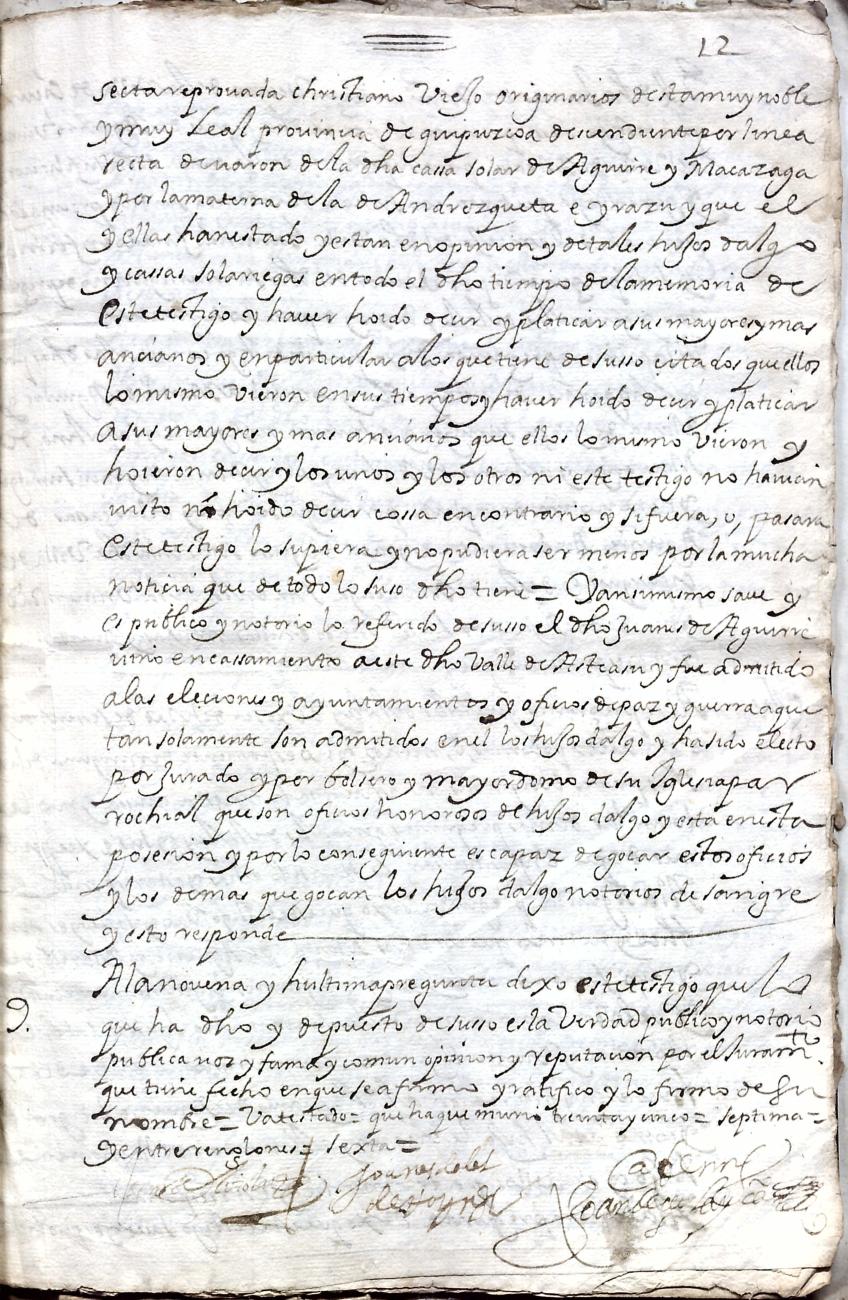 12
secta reprovada christiano Viejo originarios desta muy noble
y muy Leal provincia de guipuzcoa descendiente por linea
recta de varon de la dha cassa solar de Aguirre y Macazaga
y por la materna de la de Andrezqueta e yrazu y que el
y ellas han estado y estan en opinion y de tales hijos dalgo
y cassas solariegas en todo el dho tiempo de la memoria de
este testigo y haver hoido decir y platicar a sus mayores y mas
ancianos y en particular a los que tiene de susso citados quellos
lo mismo vieron en sus tiempos y haver hoido decir y platicar
a sus mayores y mas ancianos que ellos lo mismo vieron y
hoieron decir y los unos y los otros ni este testigo no havian
visto ni hoido decir cossa en contrario y si fuera, o, pasara
este testigo lo supiera y no pudiera ser menos por la mucha
noticia que de todo lo suso dho tiene = Y ansimismo save y
es publico y notorio lo referido de susso el dho Juanes de Aguirre
vino en cassamiento a este dho Valle de Asteasu y fue admitido
a las eleciones y ayuntamientos y oficios de paz y guerra a que
tan solamente son admitidos en el los hijos dalgo y ha sido electo
por Jurado y por bolsero y mayordomo de su Iglesia par
rochial que son oficios honorosos de hijos dalgo y esta en esta
posesion y por lo consegiuente es capaz de gocar estos oficios
y los demas que gocan los hijos dalgo notorios de sangre
y esto responde
9. A la novena y hultima pregunta dixo este testigo que lo
que ha dho y depuesto de susso es la Verdad publico y notorio
publica voz y fama y comun opinion y reputacion por el Juramto
que tiene fecho en que se afirmo y ratifico y lo firmo de su
nombre = Va testado = que ha que murio treinta y cinco = septima =
y entre renglones = sexta =